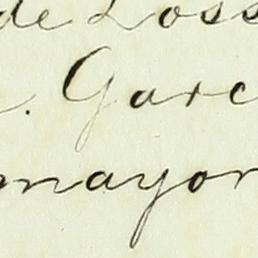 de Loss
. Garc
mayor